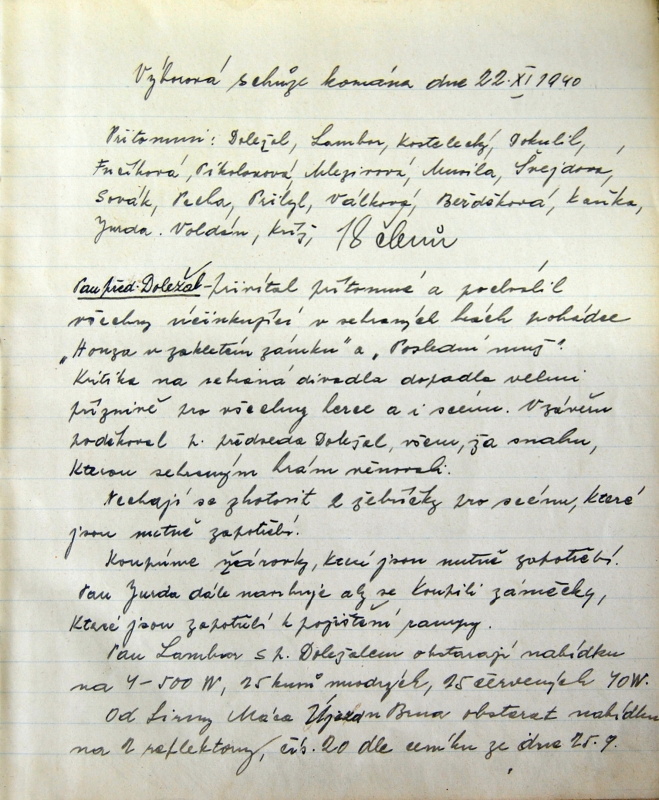 Výborová schůze konána dne 22. XI 1940
Přítomni: Doležal, Lambor, Kostelecký, Dokulil,
Fučíková, Pikolonová, Musila, Švejdova,
Sovák, Pecha, Přibyl, Válková, Berdíková, Kaňka,
Jurda. Voldán, Kříž, 18 členů
Pan před. Doležal - přivítal přítomné a pochválil
všechny účinkující v sehraných hrách pohádce
„Honza v zakletém zámku" a „Poslední muž".
Kritika na sehraná divadla dopadla velmi
příznivě pro všechny herce a i scénu. V závěru
poděkoval p. předseda Doležal, všem, za snahu,
kterou sehraným hrám věnovali.
Nechají se zhotovit 2 žebříčky pro scénu, které
jsou nutně zapotřebí.
Koupíme žárovky, které jsou nutně zapotřebí.
Pan Jurda dále navrhuje aby se koupili zámečky,
které jsou zapotřebí k pojištění rampy.
Pan Lambor s p. Doležalem obstarají nabídku
na 4-500 W, 25 kusů modrých, 25 červených 40W.
Od firmy Máca Újezd u Brna obstarat nabídku
na 2 reflektory, čís. 20 dle ceníku ze dne 25. 9.